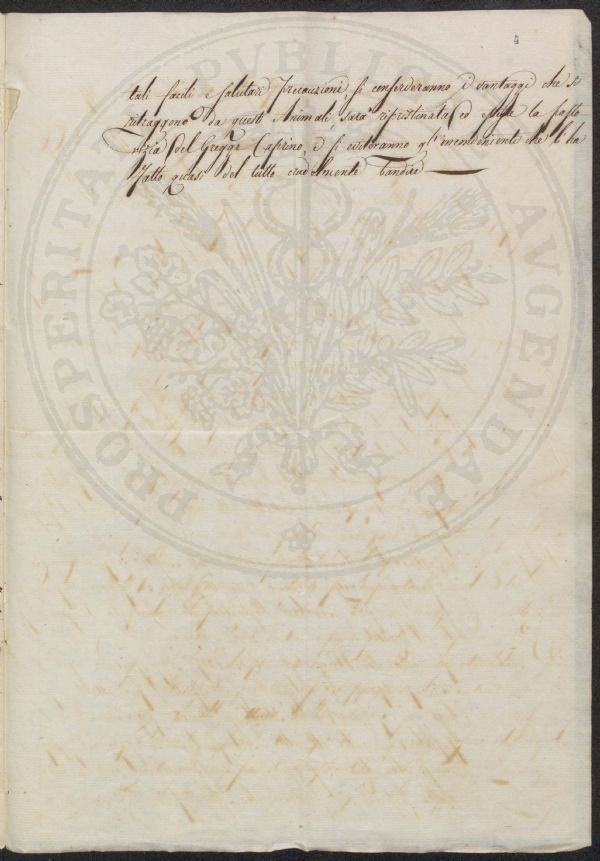 4
tali facili e salutari precauzioni, si conserveranno i vantaggi che si
ritraggono da questi Animali, sarà ripristinata ed estesa la pasto
rizia del Gregge Caprino, e si eviteranno gl'inconvenienti che l'ha
fatto quasi del tutto crudelmente bandire
PROSPERITATI PUBLICAE AVGENDAE